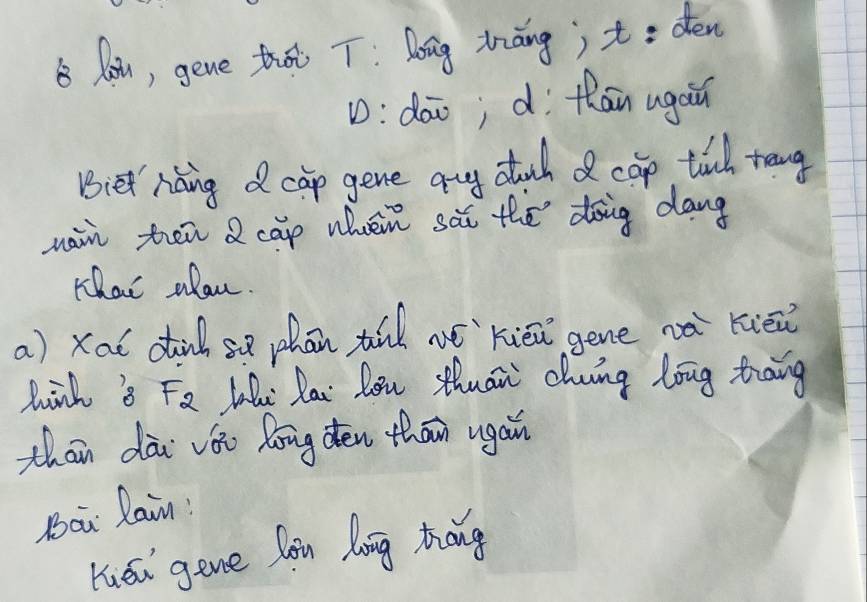 Ở lợn, gene trội T: lông trắng; t: đen
D: dài; d: thân ngắn
Biết rằng 2 cặp gene quy định 2 cặp tính trạng
nằm trên 2 cặp nhiễm sắc thể đồng dạng
khác nhau.
a) Xác định sự phân tính về kiểu gene và kiểu
hình ở F2 khi lai lợn thuần chủng lông trắng
thân dài với lông đen thân ngắn
Bài làm:
Kiểu gene lợn lông trắng